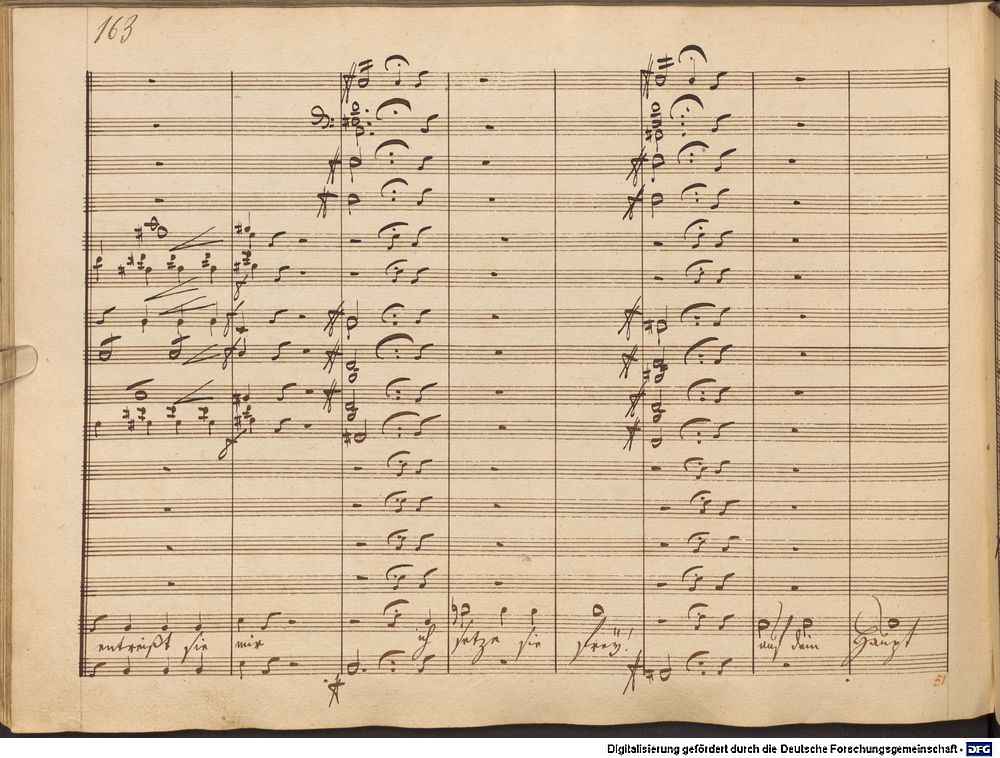 163
entreißt sie mir ich setze sie frey! auf dem Haupt
51
Digitalisierung gefördert durch die Deutsche Forschungsgemeinschaft - DFG